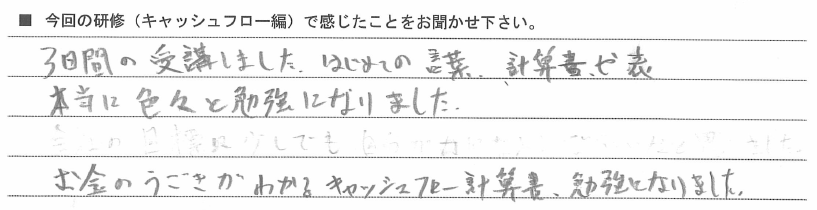 ■ 今回の研修（キャッシュフロー編）で感じたことをお聞かせ下さい。
3日間の受講しました。はじめての言葉、計算書、や表
本当に色々と勉強になりました。
会社の目標に少しでも
お金のうごきがわかるキャッシュフロー計算書、勉強になりました。